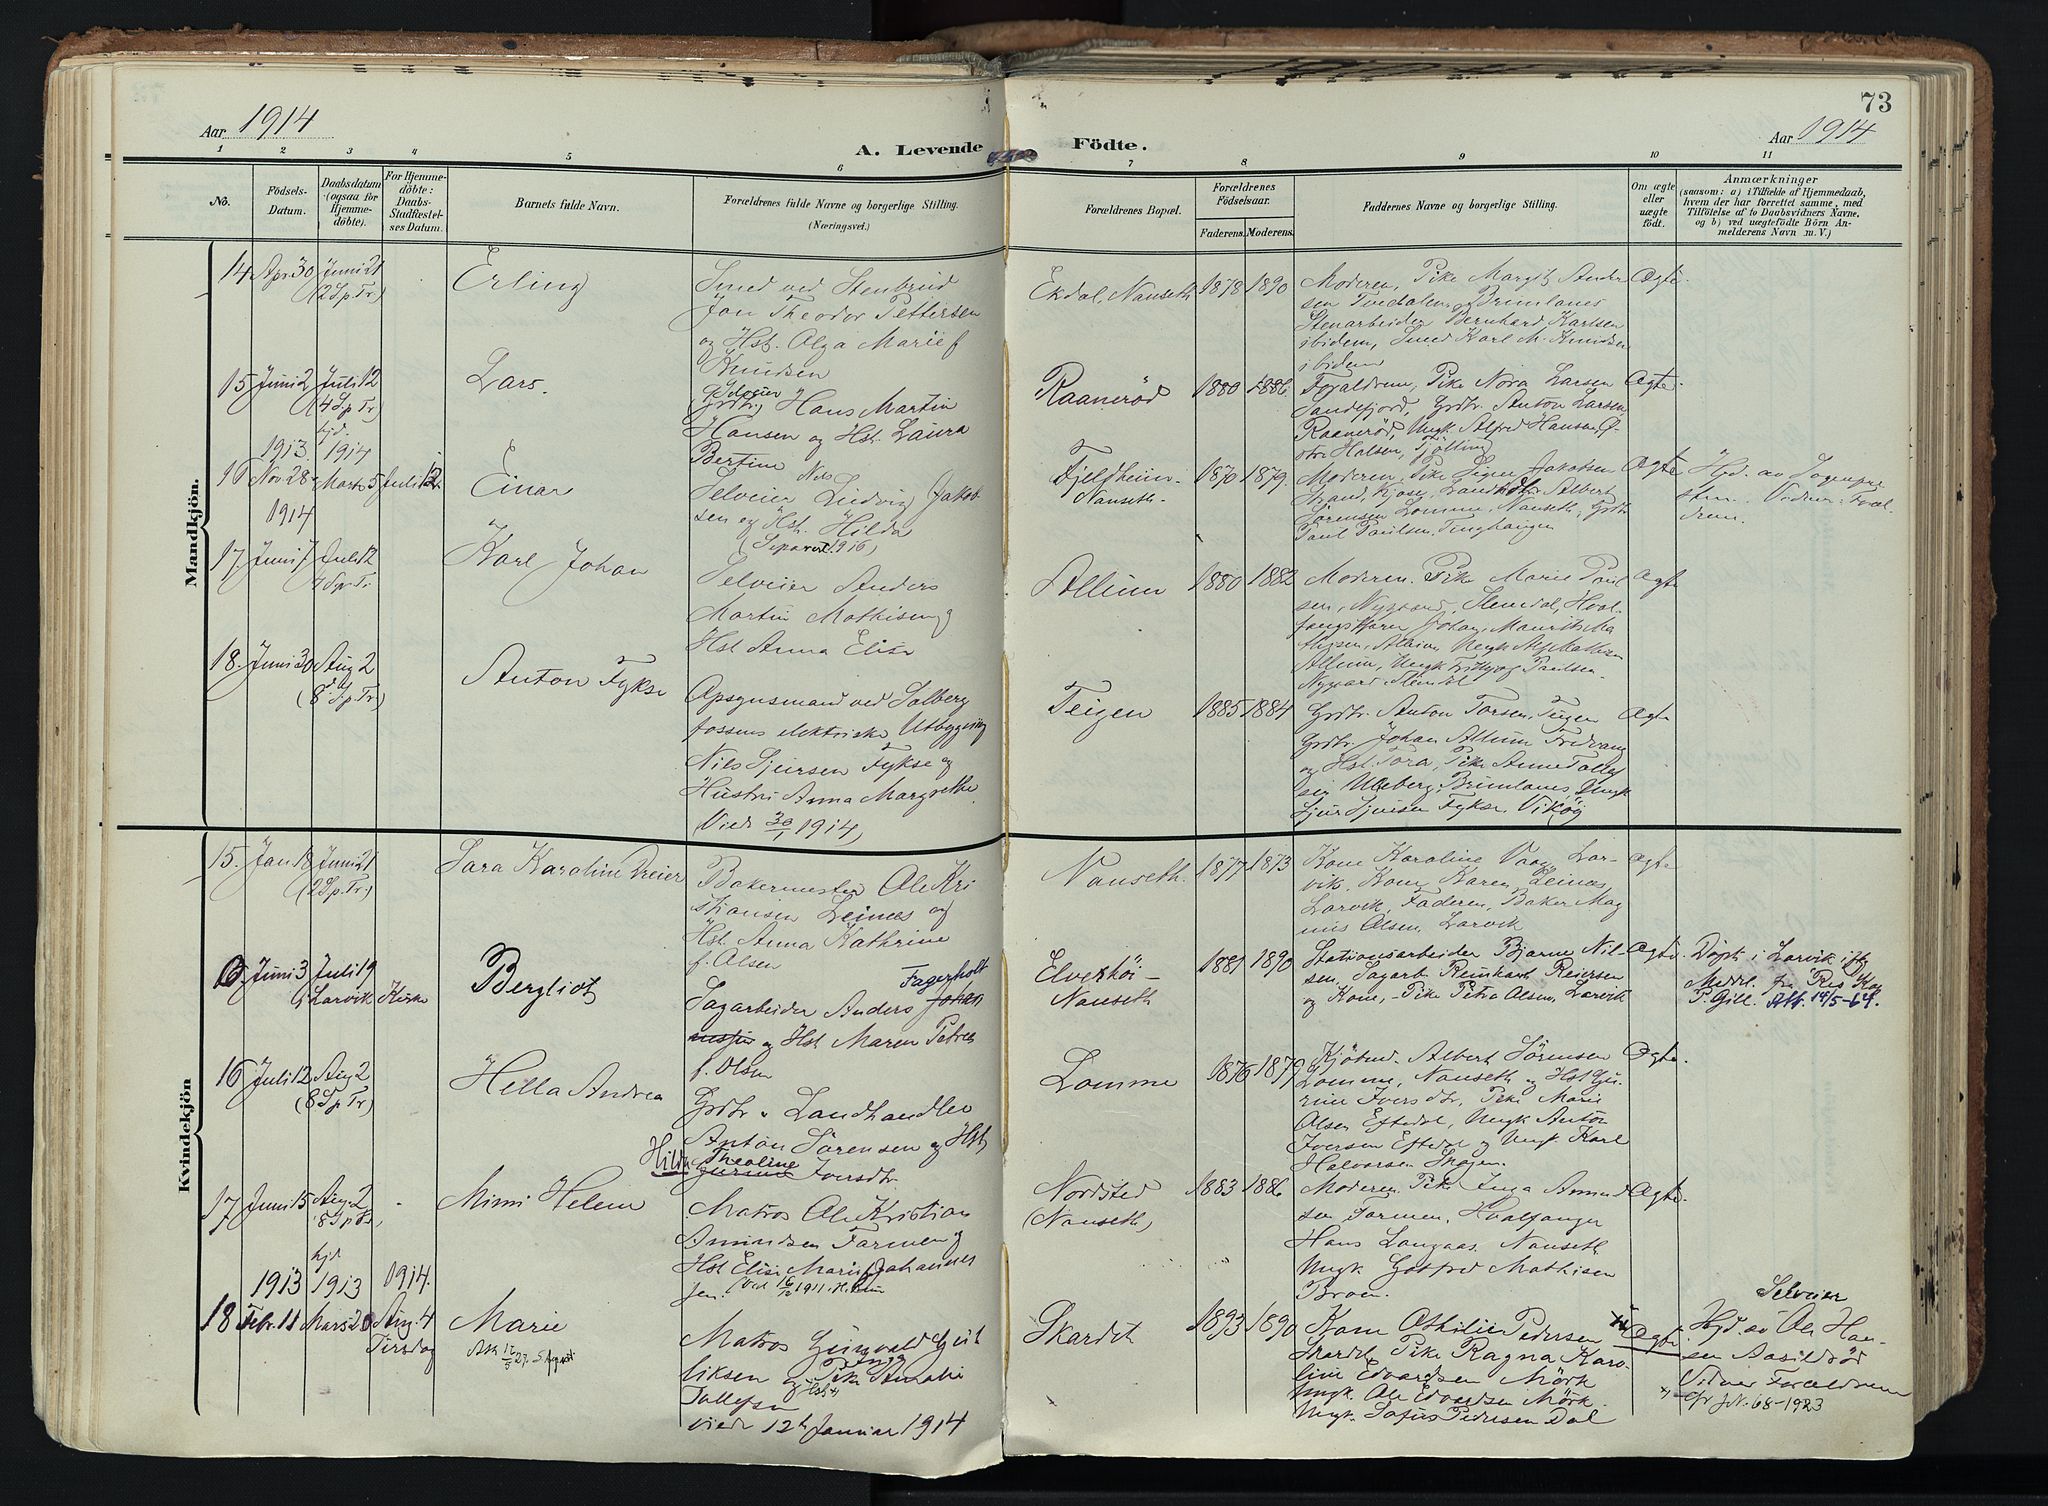 73
Aar 1914
A. Levende Födte.
Aar 1914
1 2 3 4 5 6 7 8 9 10 11
No.
Födsels-
Datum.
Daabsdatum
(ogsaa för
Hjemme-
döbte).
For Hjemme-
döbte:
Daabs-
Stadfæstel-
ses Datum.
Barnets fulde Navn.
Forældrenes fulde Navne og borgerlige Stilling.
(Næringsvei.)
Forældrenes Bopæl.
Forældrenes
Födselsaar.
Faderens. Moderens.
Faddernes Navne og borgerlige Stilling.
Om ægte
eller
uægte
födt.
Anmærkninger
(saasom: a) i Tilfælde af Hjemmedaab,
hvem der har forrettet samme, med
Tilföielse af to Daabsvidners Navne,
og b) ved uægtefödte Börn An-
melderens Navn m. V.)
Mandkjön.
14 Apr 30 Juni 21
(2 S. p. Tr)
Erling
Smed ved Stenbrud
Jon Theodor Pettersen
og Hst. Olga Marie f
Knudsen
Ekdal, Nanseth 1878 1890
Moderen, Pike Margit Ander
sen Tvedalen, Brunlanes
Stenarbeider Bernhard Karlsen
ibidem, Smed Karl M. Knudsen
ibidem
Ægte
15 Juni 2 Juli 12
(4 S p Tr)
Lars.
Selveier
Grdbr, Hans Martin
Hansen og Hst. Laura
Bertine
Raanerød 1880 1886
Forældrene, Pike Nora Larsen
Sandefjord, Grdbr. Anton Larsen,
Raanerød, Ungk. Alfred Hansen, Ø-
stre Halsen, Tjølling
Ægte
1913 hjd. 1914
16 Nov. 28 Marts 5 Juli 12
Einar
Selveier Nils Ludvig Jakob
sen og Hst. Hilda
(Separert 1916)
Fjeldheim
Nanseth 1870 1879
Moderen, Pike Signe Jakobsen
Strand, Kjose, Landhdlr Albert
Sørensen Lomme, Nanseth, Grdbr
Paul Paulsen
Ægte
Hjd. av Sogenpre
sten. Vidner: Foræl-
drene.
1914
17. Juni 7 Juli 12
4 S p. Tr
Karl Johan
Selveier Anders
Martin Mathisen og
Hst Anna Elise
Allum 1880 1882
Moderen. Pike Marie Paul
sen, Nygaard, Stendal, Hval-
fangstfører Johan Maurits Ma
thisen, Allum, Ungk Alf Mathisen
Allum, Ungk Fridtjof Paulsen
Nygaard Stendal
Ægte
18. Juni 30 Aug 2
(8 S. p. Tr)
Anton Fykse
Opsynsmand ved Solberg
fossens elektriske Utbygging
Nils Sjursen Fykse og
Hustru Anna Margrethe
(Vied 30/1 1914)
Teigen 1885 1884
Grdbr. Anton Torsen, Teigen
Grdbr. Johan Allum Fredvang
og Hst. Tora, Pike Anne Tollef
sen Ulleberg, Brunlanes, Ungk
Sjur Sjursen Fykse, Vikøy
Ægte
Kvindekjön
15. Jan 18 Juni 21
(2 S. p. Tr)
Sara Karoline Dreier
Bakermester Ole Kri
stiansen Leinæs og
Hst. Anna Kathrine
f. Olsen
Nanseth. 1877 1873
Kone Karoline Vaag, Lar-
vik, Kone Karen Leinæs,
Larvik, Faderen, Baker Mag
nus Olsen, Larvik
Ægte
Juni 3 Juli 19
Larvik Kirke
Bergliot
Fagerholt
Sagarbeider Anders Johan
nesen og Hst Maren Petrea
f. Olsen
Elverhøi
Nanseth 1881 1890
Stationsarbeider Bjarne Nil-
sen, Sagarb Reinhart Reiersen
og Kone, - Pike Petra Olsen, Larvik
Ægte.
Døpt i Larvik ifl.
Meddl. fra Res. Kap
P. Gill. Att. 14/5-64.
16 Juli 12 Aug 2
(8 S p Tr)
Hilla Andrea
Grdbr & Landhandler
Anton Sørensen og Hst
Hilda Theoline
Gurine Iversdtr.
Lomme 1876 1879
Kjøbmd. Albert Sørensen
Lomme, Nanseth og Hst Gu-
rine Iversdtr, Pike Marie
Olsen Eftedal, Ungk Anton
Iversen Eftedal og Ungk Karl
Halvorsen Skogen.
Ægte.
17 Juni 15 Aug 2
8 S p Tr
-
Mimi Helene
Matros Ole Kristian
Amundsen Farmen og
Hst Elise Marie f Johannes
sen. (Vied 16/12 1911.
Nordsted
(Nanseth) 1883 1886
Moderen Pike Inga Amund
sen Farmen, Hvalfanger
Hans Langaas, Nanseth
Ungk Gotfred Mathisen
Broen.
Ægte
hjd
1913 1913 1914.
18 Febr. 11 Mars 20 Aug. 4
Tirsdag
Marie
Matros Gunvald Gult
liksen og Pike Amalie
Tollefsen
vied 12te Januar 1914
Skardet 1893 1890
Kone Othilie Pedersen
Skardet Pike Ragna Karo-
line Edvardsen Mørk
Ungk. Ole Edvardsen Mørk.
Ungk. Sofus Pedersen Dal
Ægte
Selveier
Hjd. av Ole Han-
sen Aasildrød
Vidner Forældrene
x) cfr JN. 68-1923